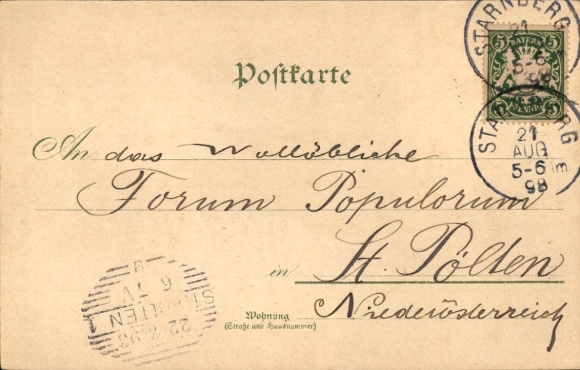 STARNBERG
21
5-6
98
5 BAYERN 5
Postkarte
STARNBERG
21
AUG
5-6
98
An das Wollöbliche
Forum Populorum
in St. Pölten
Niederösterreich
Wohnung
(Straße und Hausnummer)
ST. PÖLTEN 1
22.8.98
6